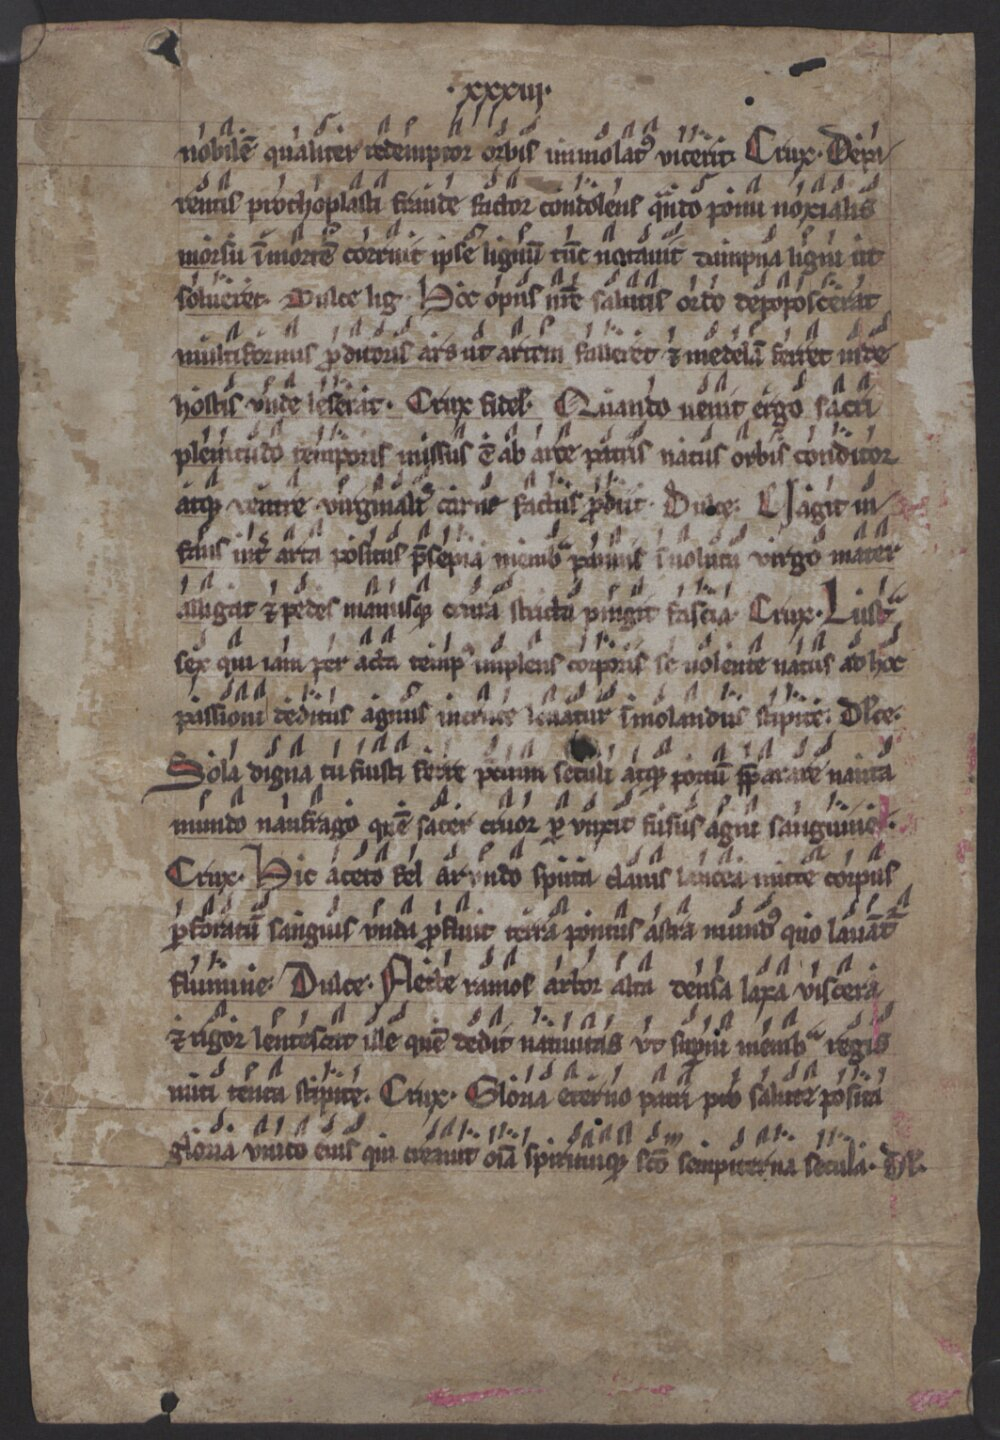 ·xxxiii·
nobilē qualiter redemptor orbis immolatꝰ vicerit. Crux. De pa
rentis prothoplasti fraude factor condolens qn̄do pomi noxialis
morsu ī mortē corruit ipse lignū tūc notauit dampna ligni ut
solueret. Dulce lig. Hoc opus nr̄e salutis ordo depoposcerat
multiformis ꝓditoris ars ut artem falleret ⁊ medelā ferret inde
hostis vnde leserat. Crux fidel. Quando uenit ergo sacri
plenitudo temporis missus ē ab arce patris natus orbis conditor
atqꝫ ventre virginali carne factus ꝓdiit. Dulce. Uagit in
fans int̄ arta positus p̄sepia membᵃ pannis īuoluta virgo mater
alligat ⁊ pedes manusqꝫ crura stricta pingit fascia. Crux. Lustᵃ
sex qui iam per acta tempꝰ implens corporis se uolente natus ad hoc
passioni deditus agnus in cruce leuatur īmolandus stipite. Dl̄ce.
Sola digna tu fuisti ferre pretium seculi atqꝫ portū p̄parare nauta
mundo naufrago quē sacer cruor ꝑ vnxit fusus agni sanguine.
Crux. Hic aceto fel arundo sputa clauis lancea mitte corpus
ꝑforatū sanguis vnda ꝓfluit terra pontus astra mundꝰ quo lauāt̄
flumine. Dulce. Flecte ramos arbor alta tensa laxa viscera
⁊ rigor lentescat ille quē dedit natiuitas vt supni membᵃ regis
miti tenta stipite. Crux. Gloria eterno patri pro salute posita
gloria vnico eius qui creauit oīa spirituiqꝫ sc̄o sempiterna secula. Dl̄.